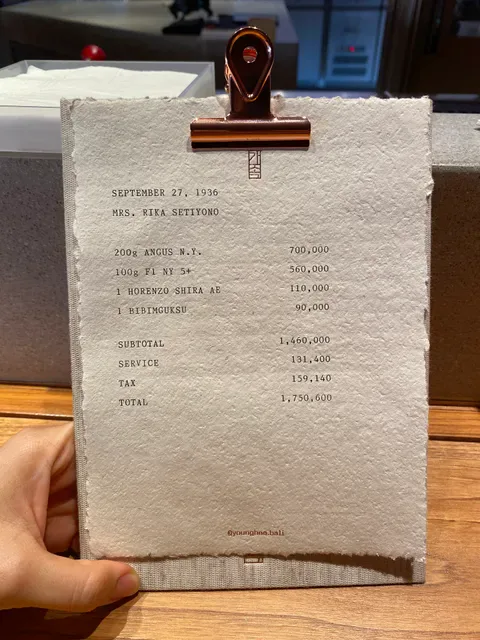 SEPTEMBER 27, 1936
MRS. RIKA SETIYONO
200g ANGUS N.Y. 700,000
100g F1 NY 5+ 560,000
1 HORENZO SHIRA AE 110,000
1 BIBIMGUKSU 90,000
SUBTOTAL 1,460,000
SERVICE 131,400
TAX 159,140
TOTAL 1,750,600